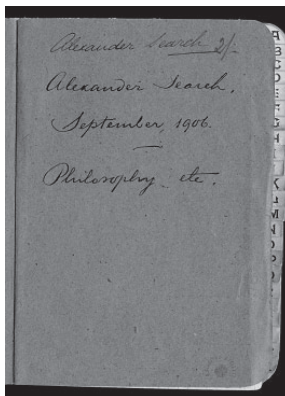 Alexander Search 2/-
Alexander Search.
September, 1906.
Philosophy etc.
A
B
C
D
E
F
G
H
K
L
M
N
O
P